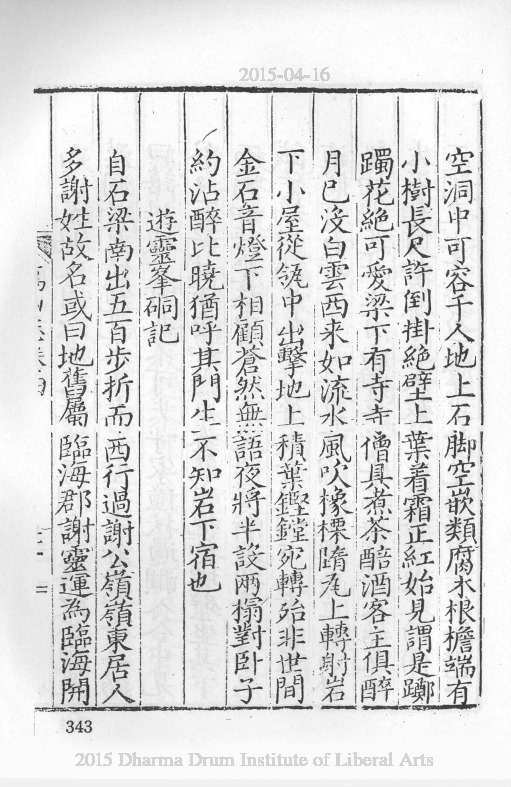 2015-04-16
空洞中可容千人地上石脚空嵌類腐木根檐端有
小樹長尺許倒掛絶壁上葉着霜正紅始見謂是躑
躅花絶可愛梁下有寺寺僧具煮茶醅酒客主俱醉
月已没白雲西来如流水風吹橡栗墮瓦上轉射岩
下小屋從瓴中出擊地上積葉鏗鏜宛轉殆非世間
金石音燈下相顧蒼然無語夜將半設兩榻對卧子
約沾醉比曉猶呼其門生不知岩下宿也
遊靈峯硐記
自石梁南出五百步折而西行過謝公嶺嶺東居人
多謝姓故名或曰地舊屬臨海郡謝靈運為臨海開
343
2015 Dharma Drum Institute of Liberal Arts